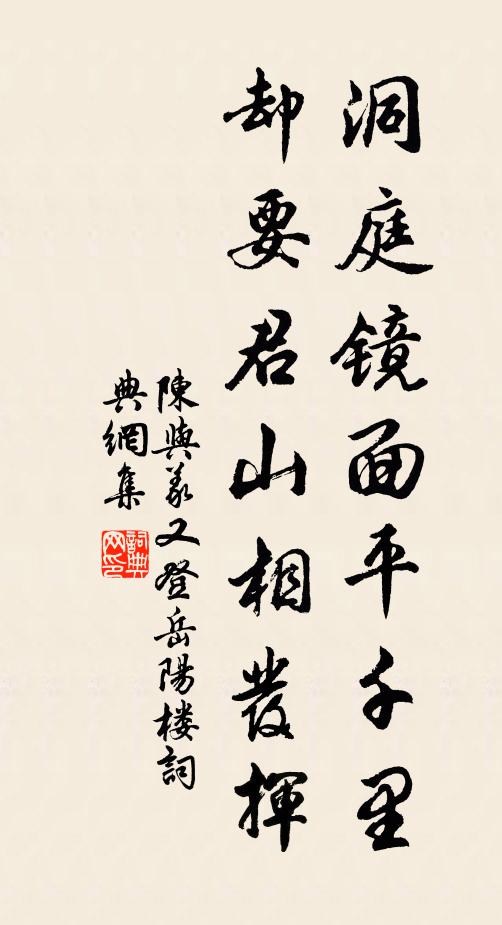 洞庭镜面平千里
却要君山相發揮
陳與義又登岳陽楼詞
典網集
詞典网印